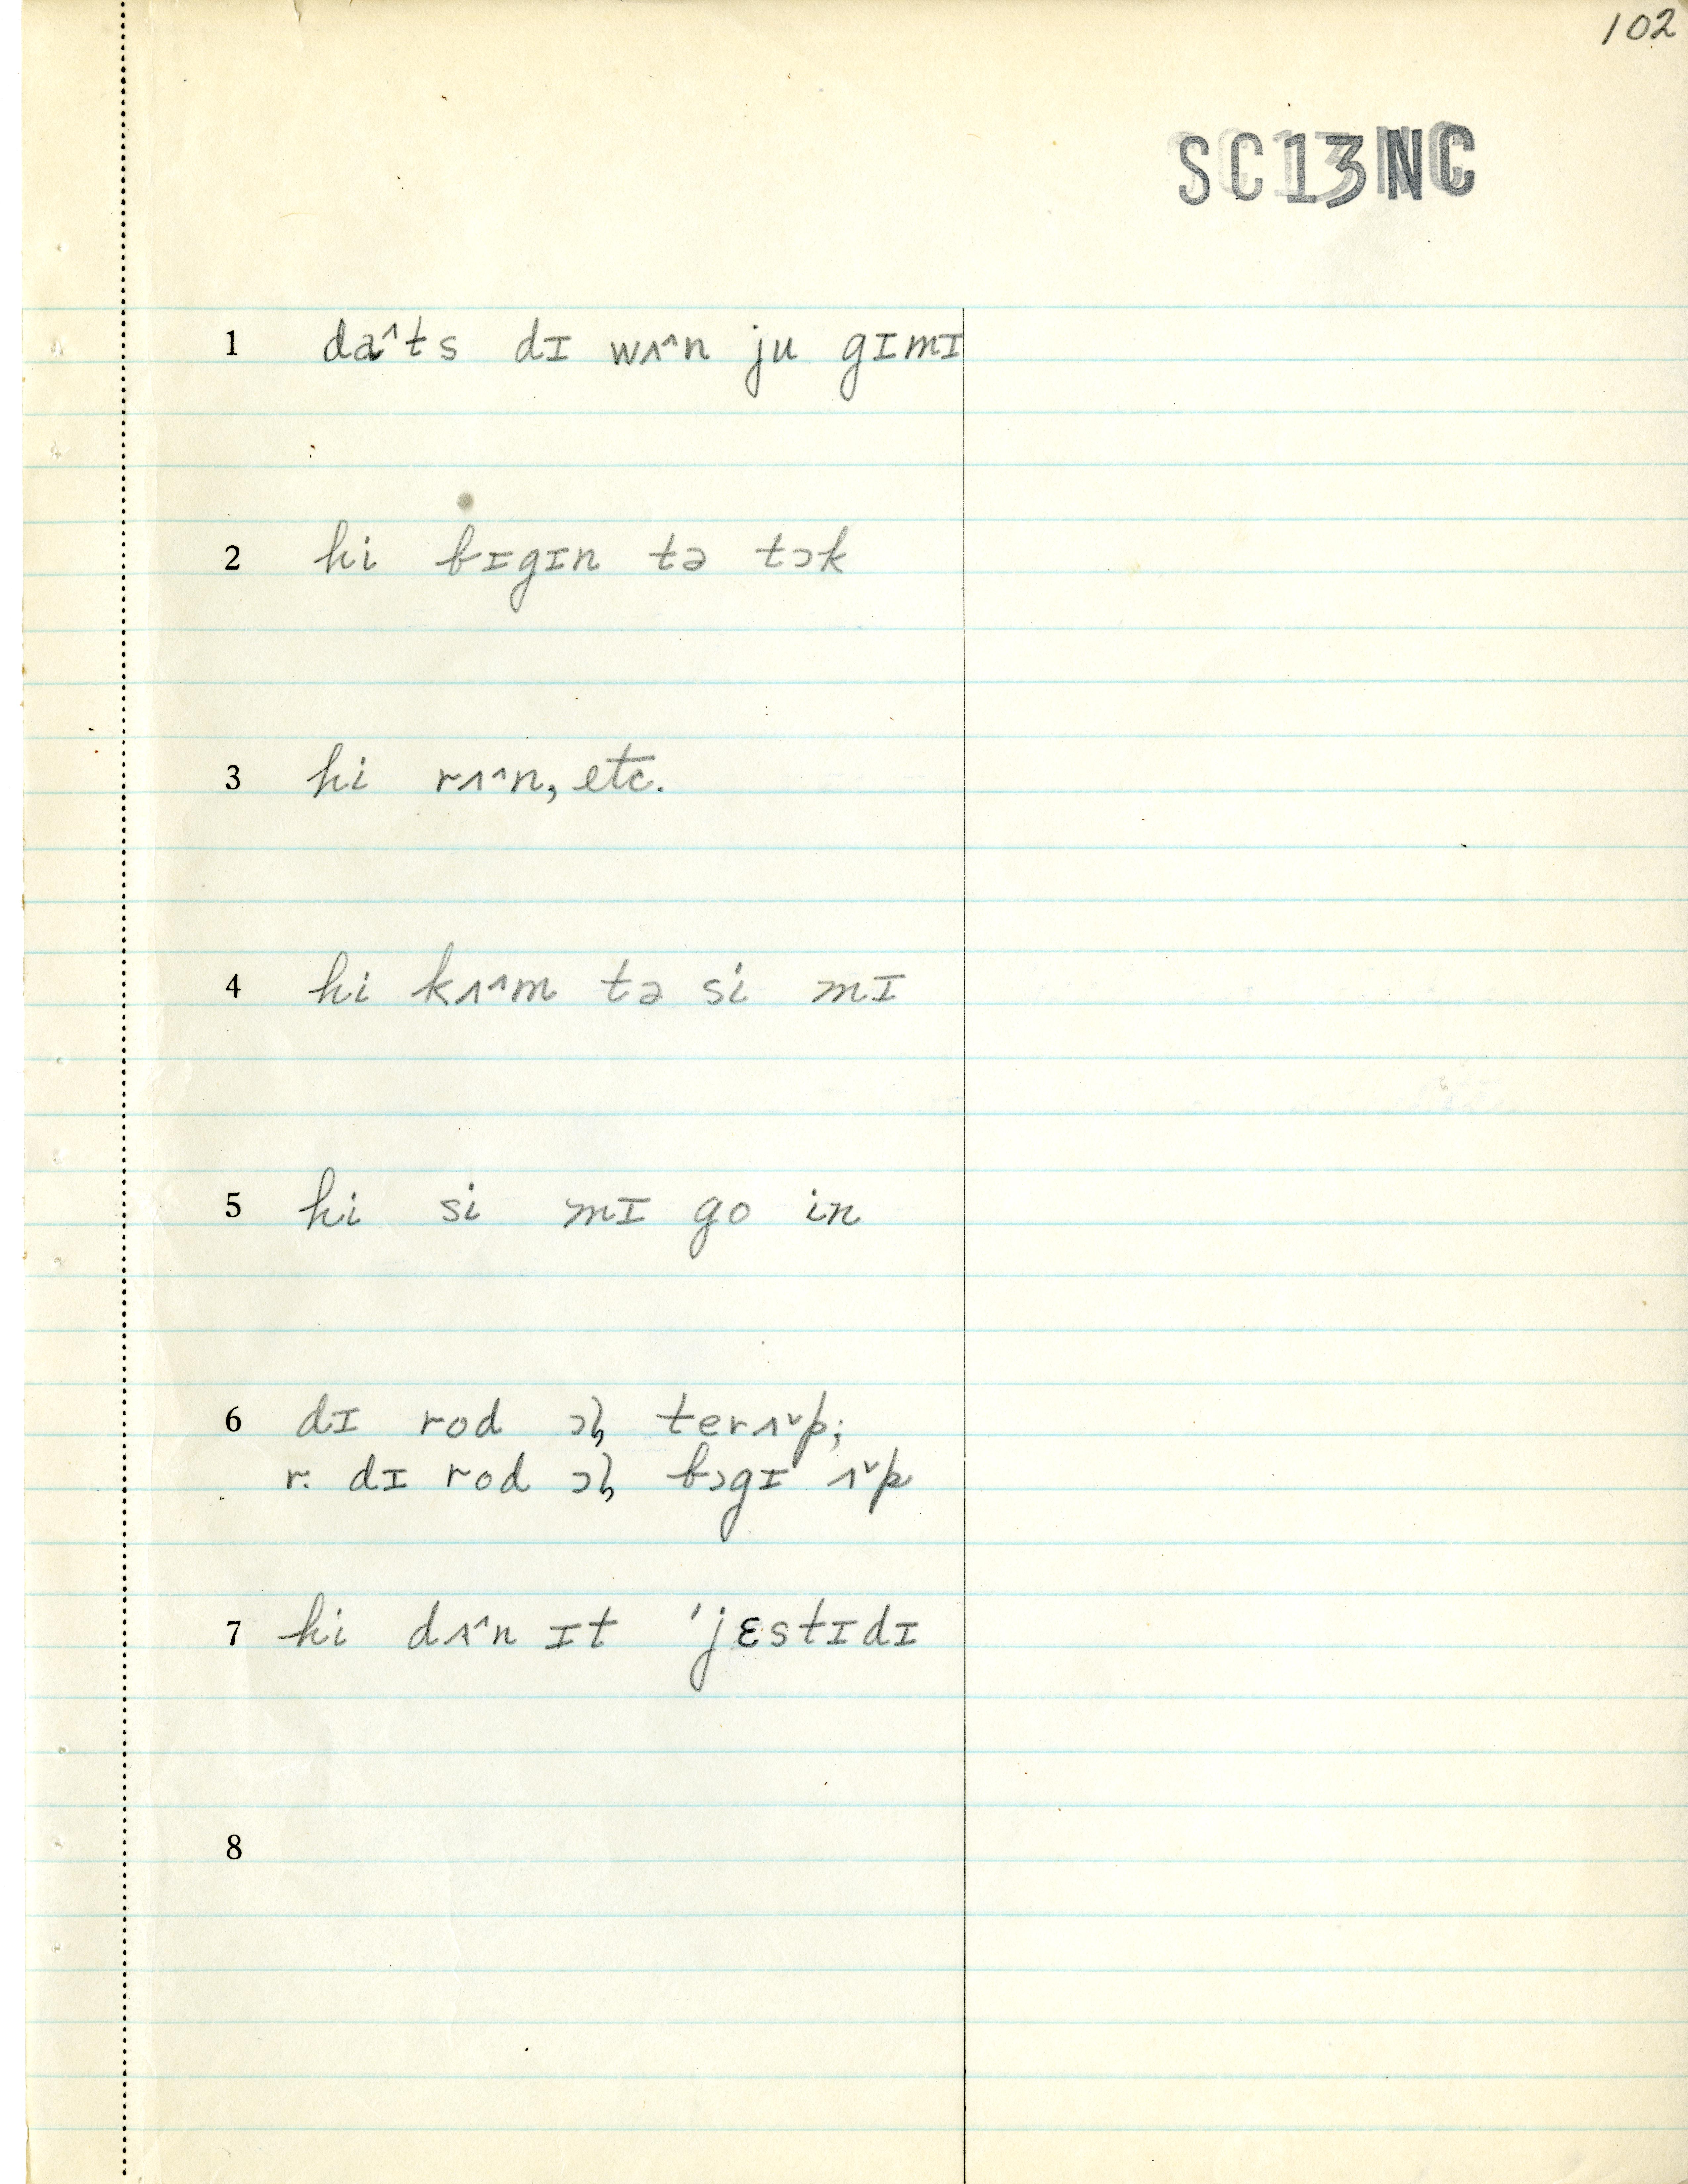 102
SC13NC
1 da^ts dɪ wʌ^n ju gɪmɪ
2 hi bɪgɪn tə tɔk
3 hi rʌ^n, etc.
4 hi kʌ^m tə si mɪ
5 hi si mɪ go in
6 dɪ rod ɔɫ terʌ˅p;
r. dɪ rod ɔɫ bɔgɪ ʌ˅p
7 hi dʌ^n ɪt 'jɛstɪdɪ
8